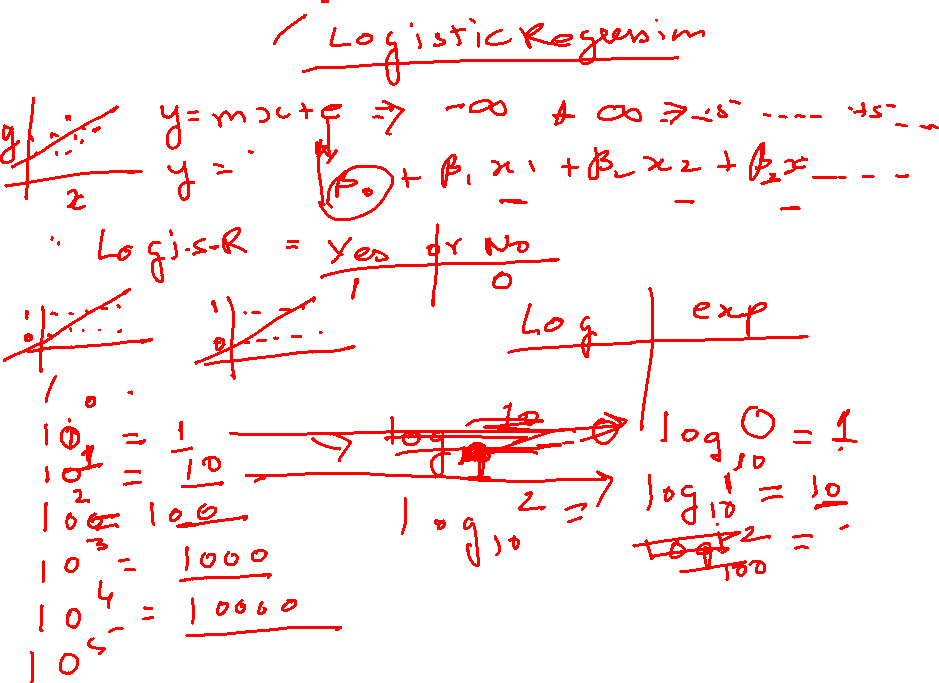 Logistic Regression
y = mx + c ⇒ -∞ + ∞ ⇒ -5 ---- +5 --
y
x
y = β₀ + β₁ x1 + β₂ x2 + β₂ x ----
Logi-s-R = Yes or No
1 0
1
0
1
0
Log exp
10⁰ = 1
10¹ = 10
10² = 100
10³ = 1000
10⁴ = 10000
10⁵
log₁₀ 2 =
log₁₀ 0 = 1
log₁₀ 1 = 10